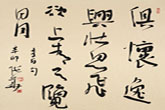 俱懷逸
興壯思飛
欲上青天覽
明月
李白句